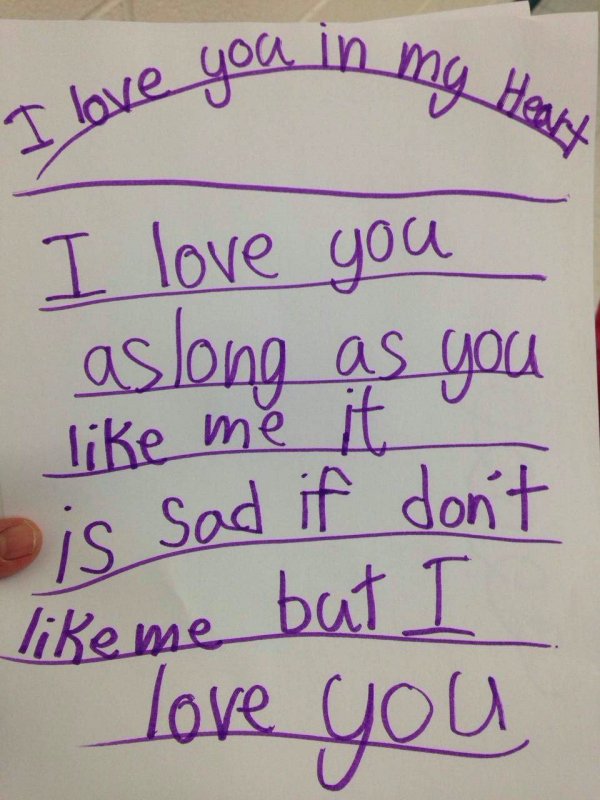 I love you in my Heart
I love you
aslong as you
like me it
is sad if don't
like me but I
love you